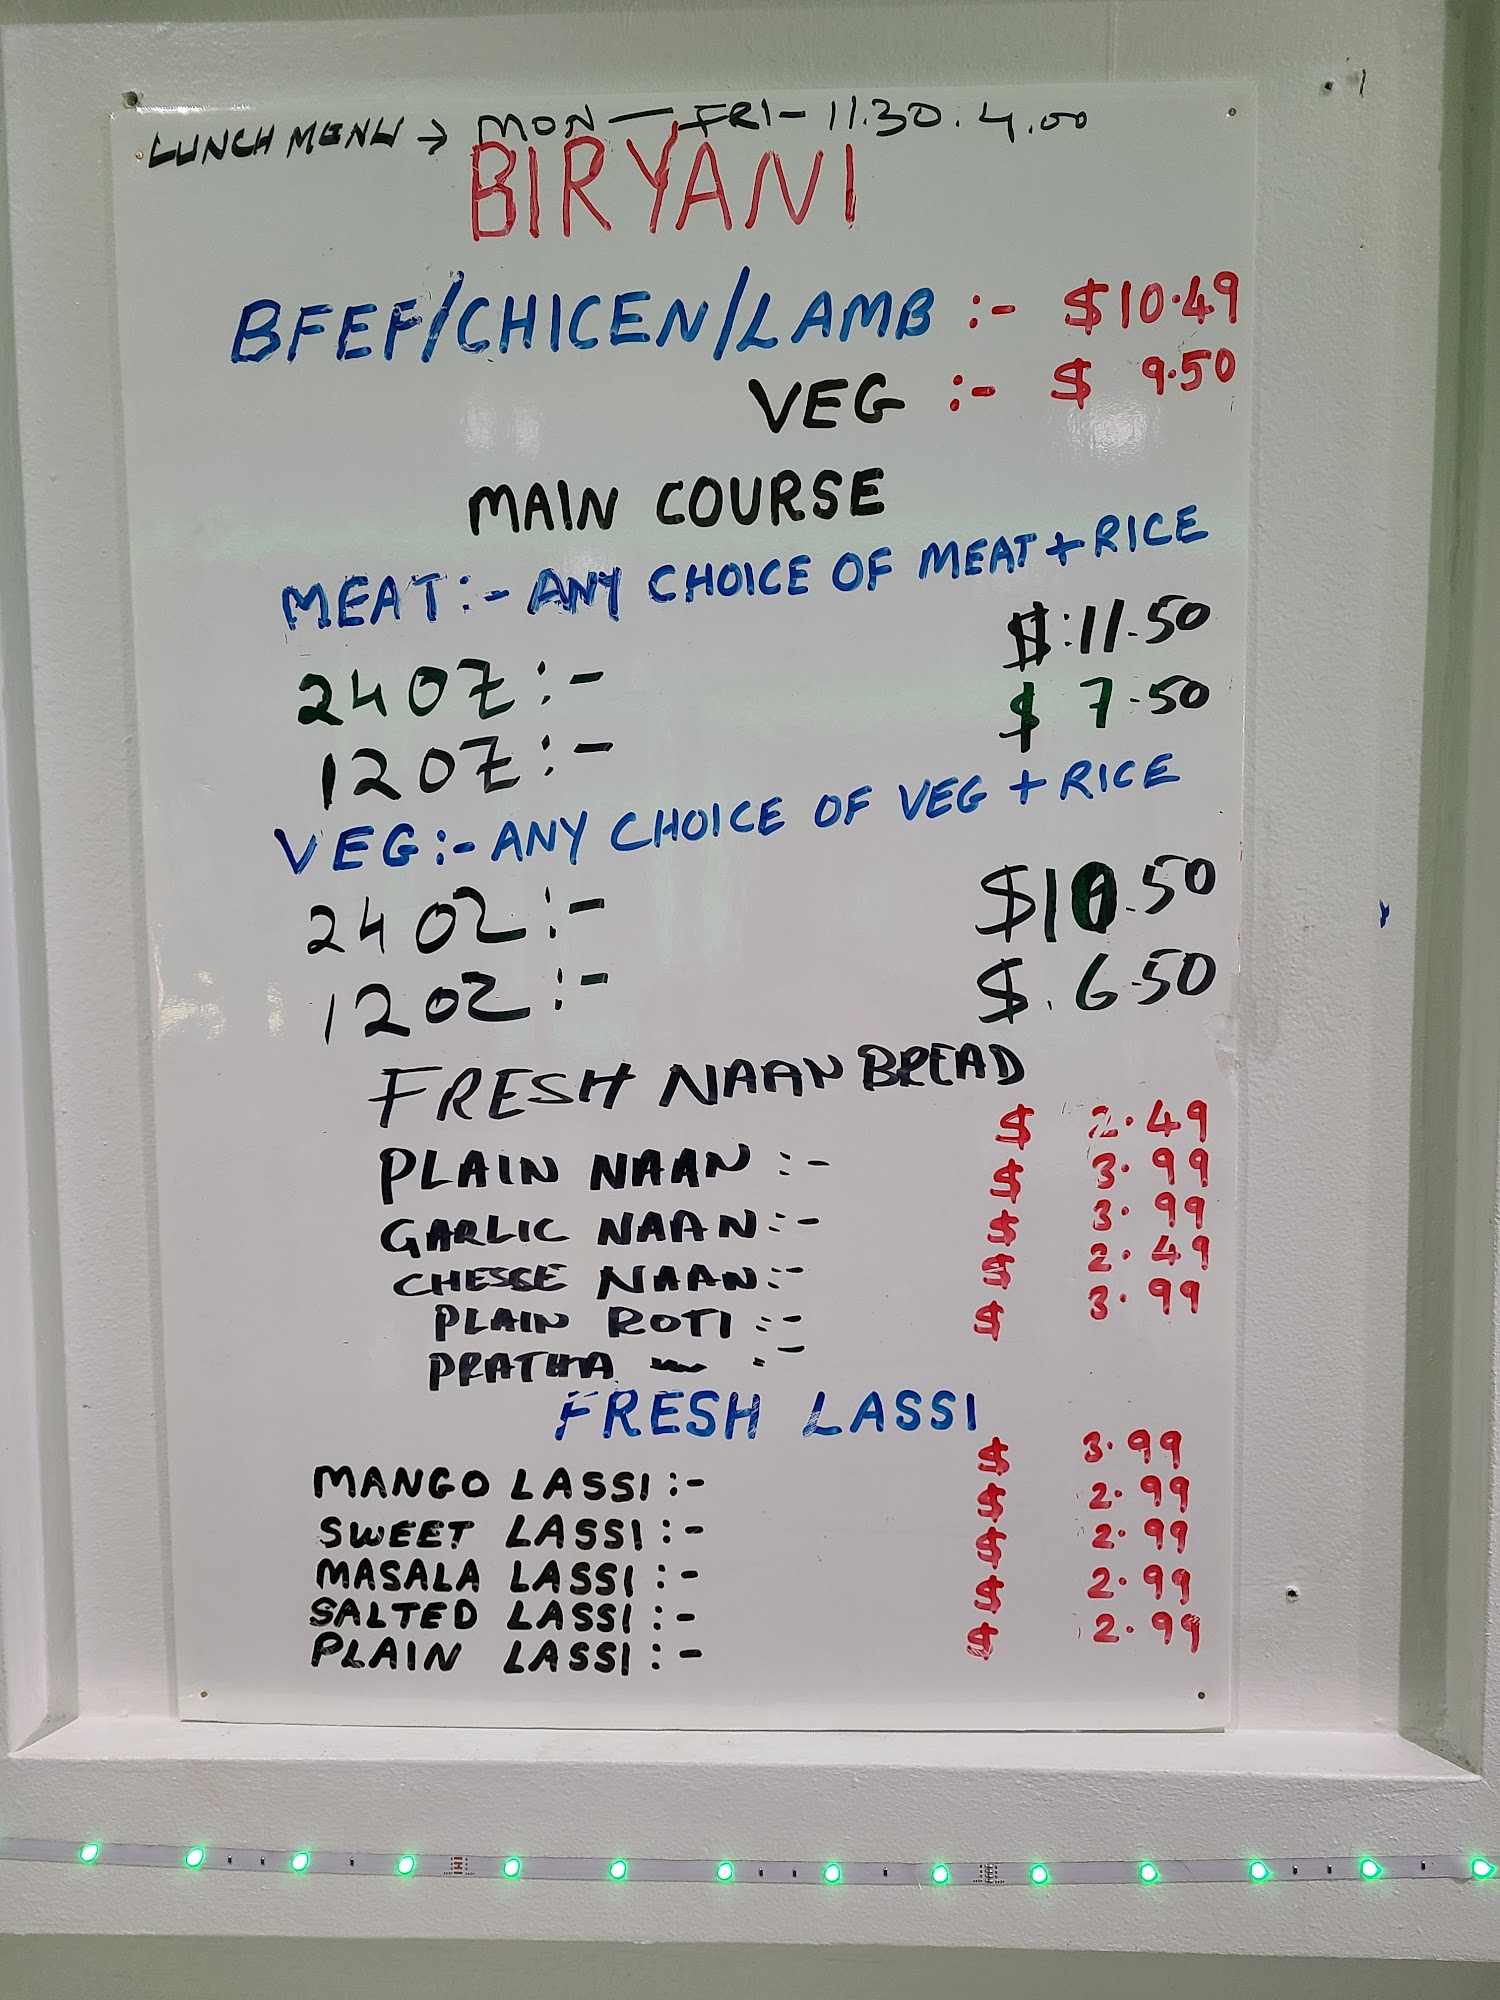 LUNCH MENU → MON — FRI - 11.30. 4.00
BIRYANI
BFEF/CHICEN/LAMB :- $10.49
VEG :- $ 9.50
MAIN COURSE
MEAT:- ANY CHOICE OF MEAT + RICE
24OZ :- $:11.50
12OZ :- $ 7.50
VEG:- ANY CHOICE OF VEG + RICE
24OZ :- $10.50
12OZ :- $. 6.50
FRESH NAAN BREAD
PLAIN NAAN :- $ 2.49
GARLIC NAAN :- $ 3.99
CHESSE NAAN :- $ 3.99
PLAIN ROTI :- $ 2.49
PRATHA ~ :- $ 3.99
FRESH LASSI
MANGO LASSI :- $ 3.99
SWEET LASSI :- $ 2.99
MASALA LASSI :- $ 2.99
SALTED LASSI :- $ 2.99
PLAIN LASSI :- $ 2.99